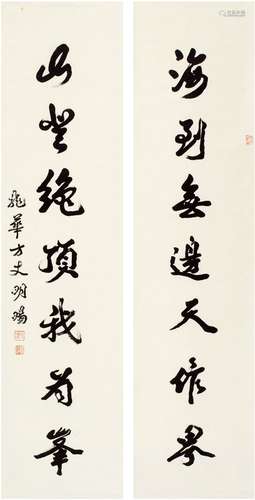 海到無邊天作界
山登絶頂我為峯
龍華方丈明暘